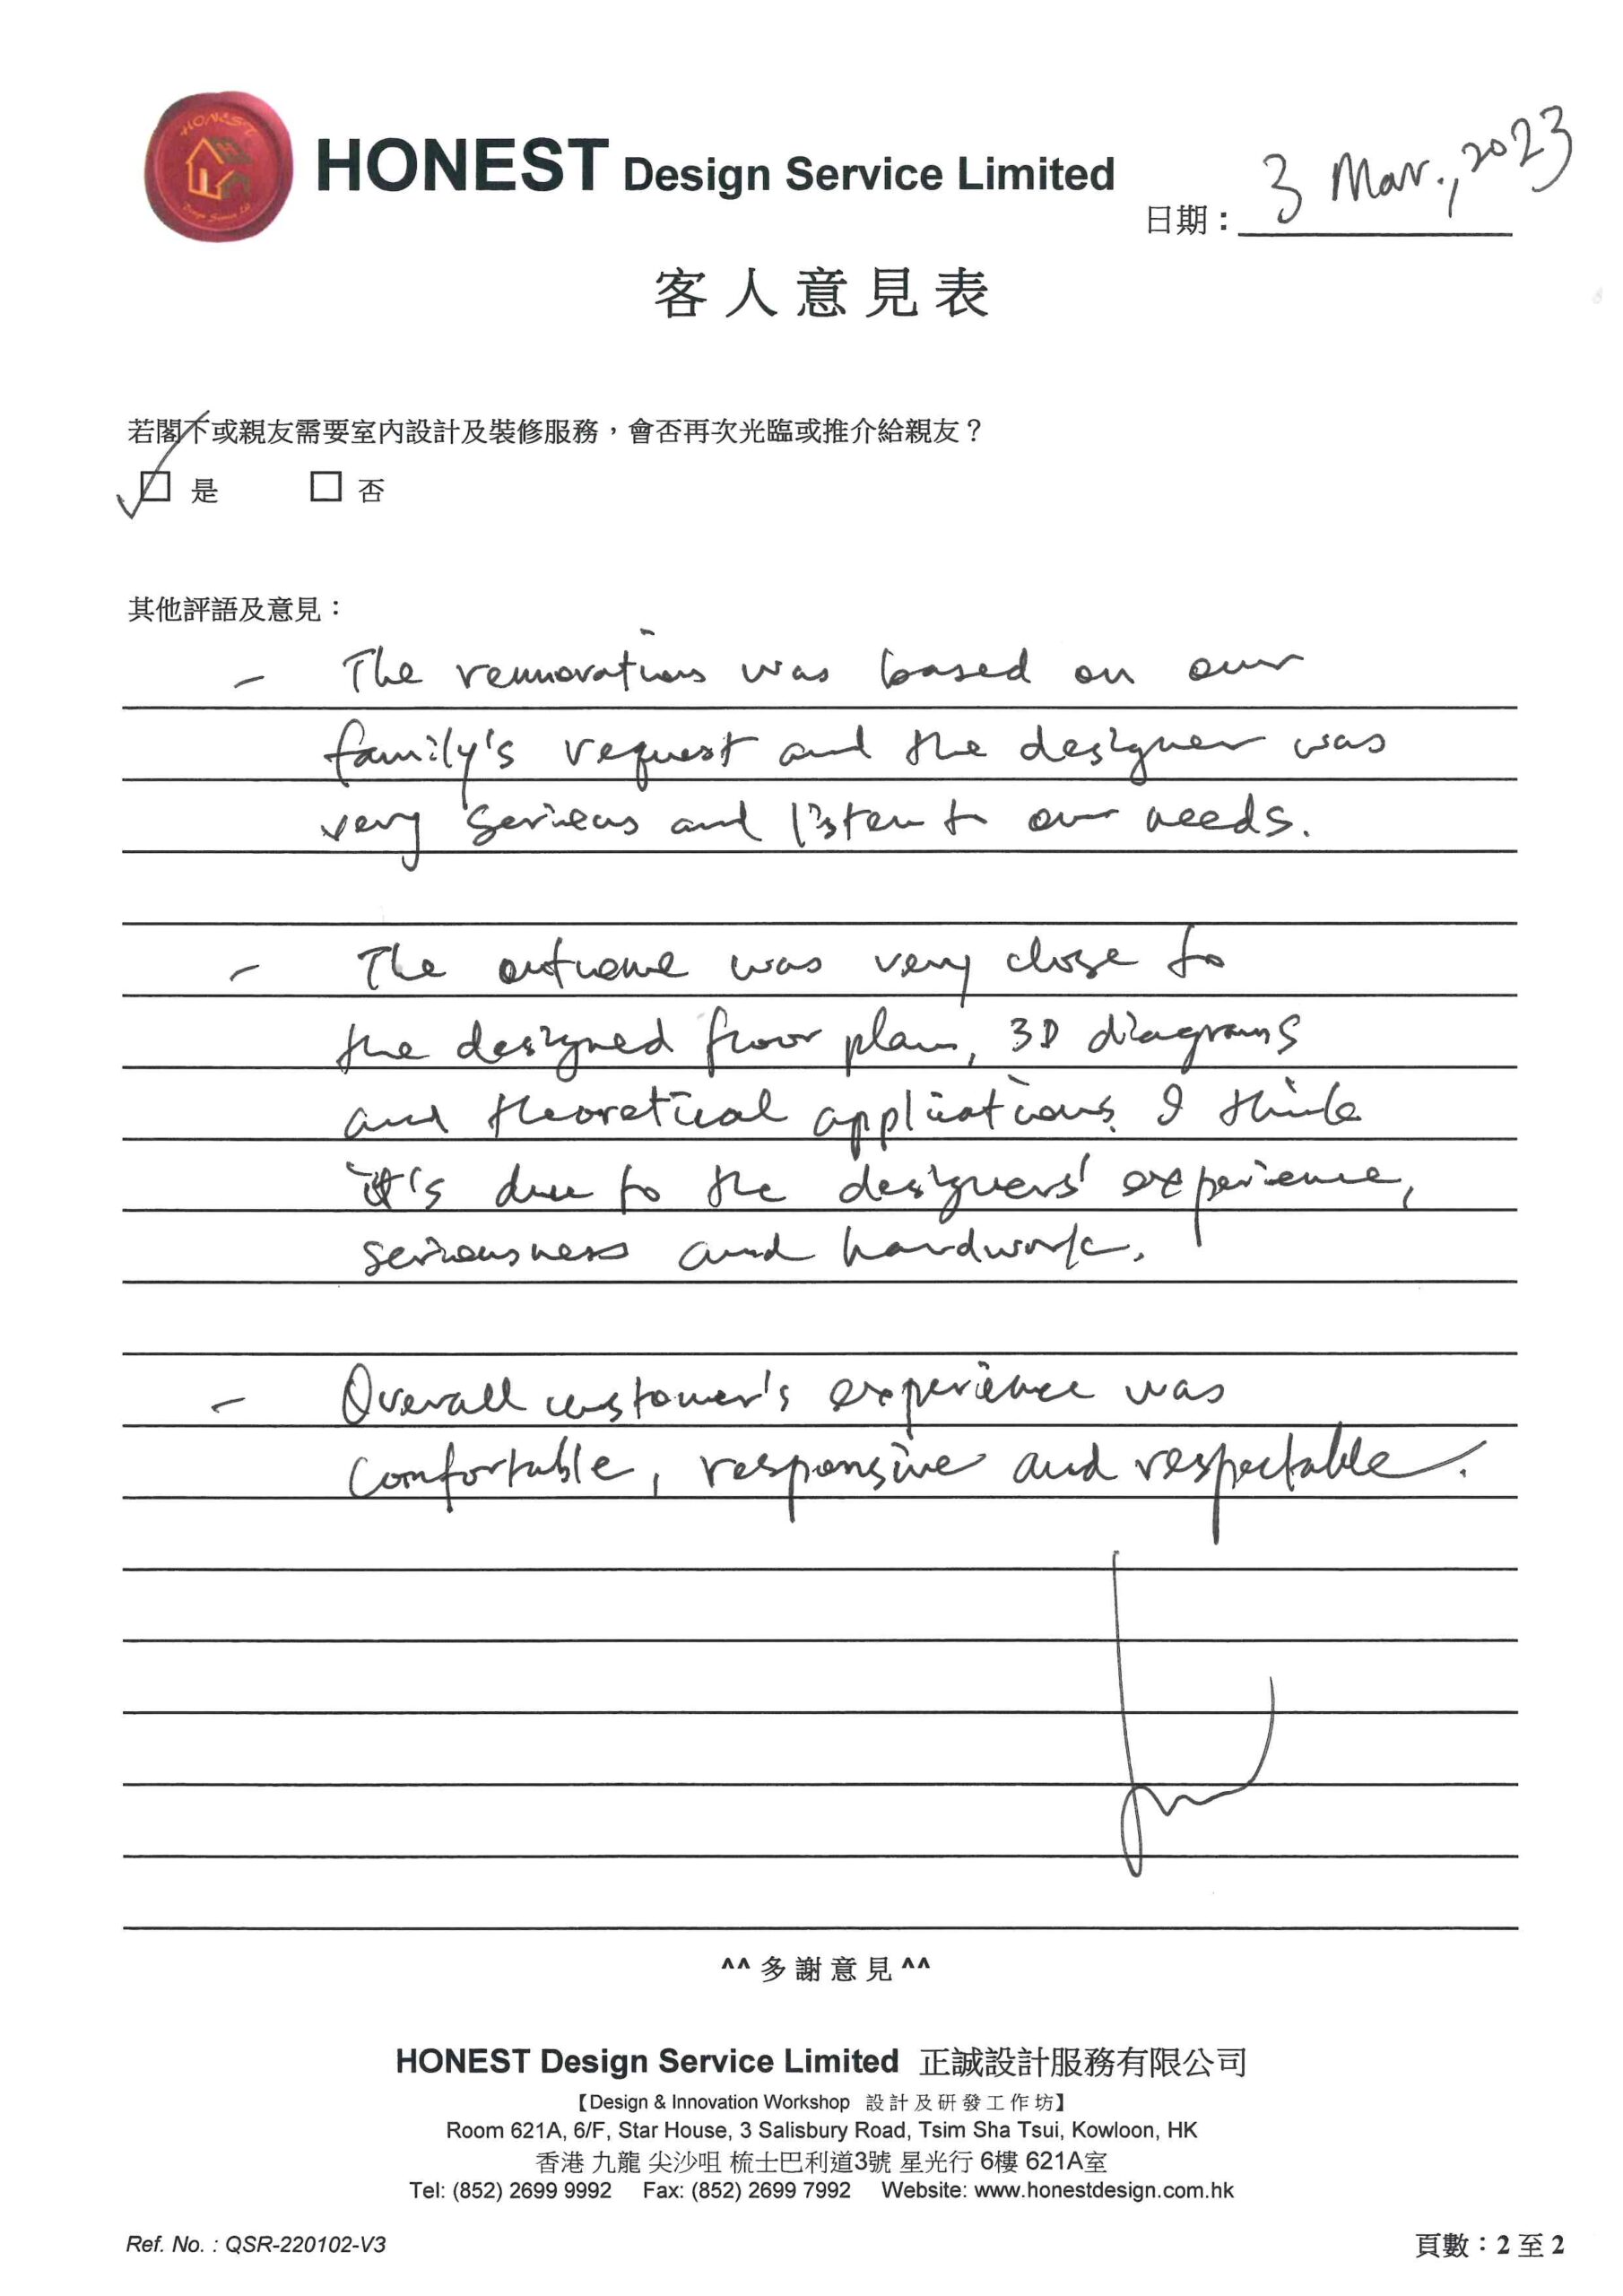 HONEST
Design Service Ld
HONEST Design Service Limited
日期：3 Mar., 2023
客人意見表
若閣下或親友需要室內設計及裝修服務，會否再次光臨或推介給親友？
☑ 是 ☐ 否
其他評語及意見：
- The rennovations was based on our
family's request and the designer was
very serieous and listen to our needs.
- The outcome was very close to
the designed floor plan, 3D diagrams
and theoretical applications. I think
it's due to the designers' experience,
seriousness and hardwork.
- Overall customer's experience was
comfortable, responsive and respectable.
^^多謝意見^^
HONEST Design Service Limited 正誠設計服務有限公司
【Design & Innovation Workshop 設計及研發工作坊】
Room 621A, 6/F, Star House, 3 Salisbury Road, Tsim Sha Tsui, Kowloon, HK
香港 九龍 尖沙咀 梳士巴利道3號 星光行 6樓 621A室
Tel: (852) 2699 9992 Fax: (852) 2699 7992 Website: www.honestdesign.com.hk
Ref. No. : QSR-220102-V3
頁數：2 至 2